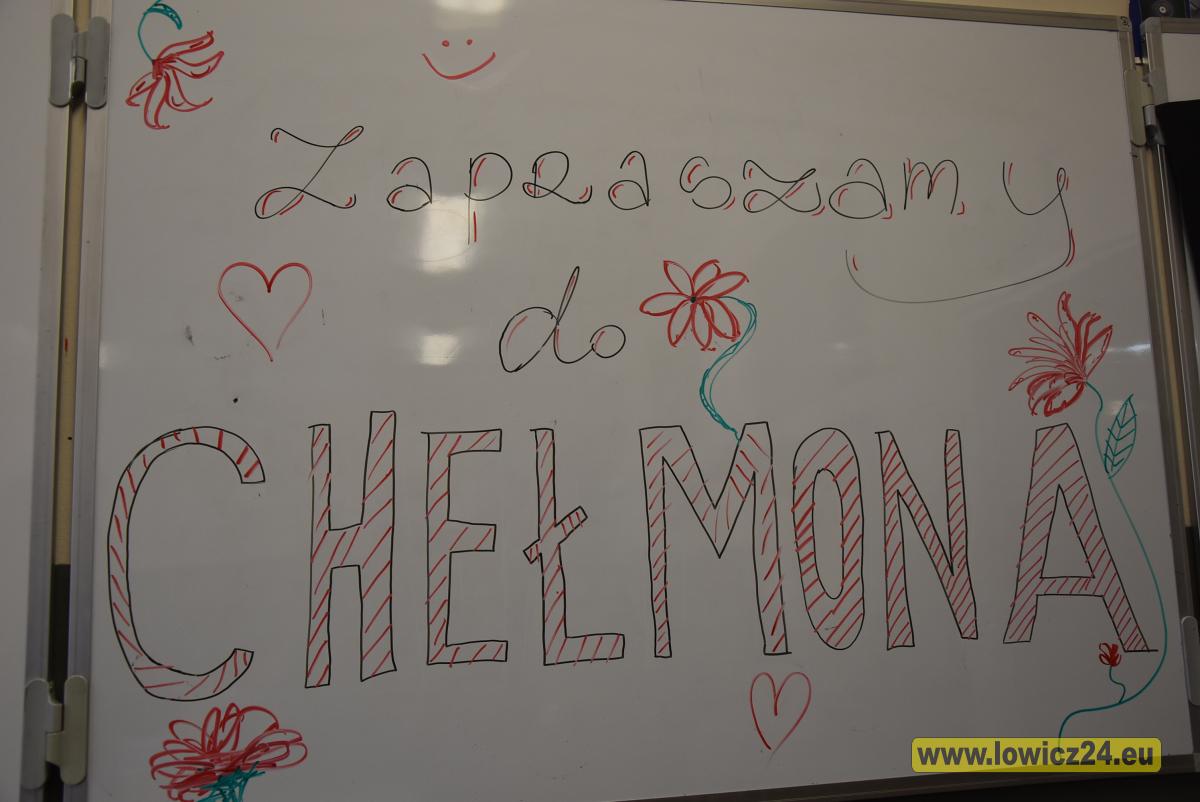 Zapraszamy
do
CHEŁMONA
www.lowicz24.eu